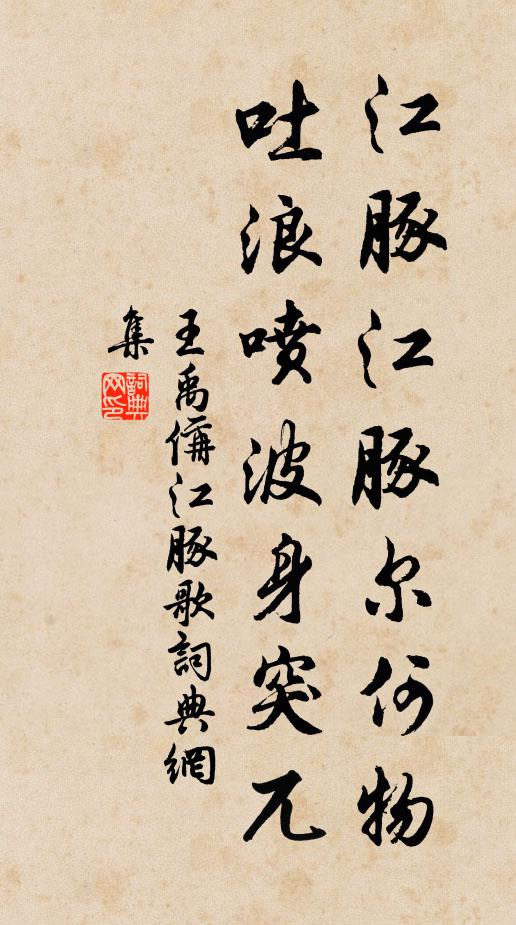 江豚江豚尔何物
吐浪喷波身突兀
王禹偁江豚歌詞典網
集
詞典
网印